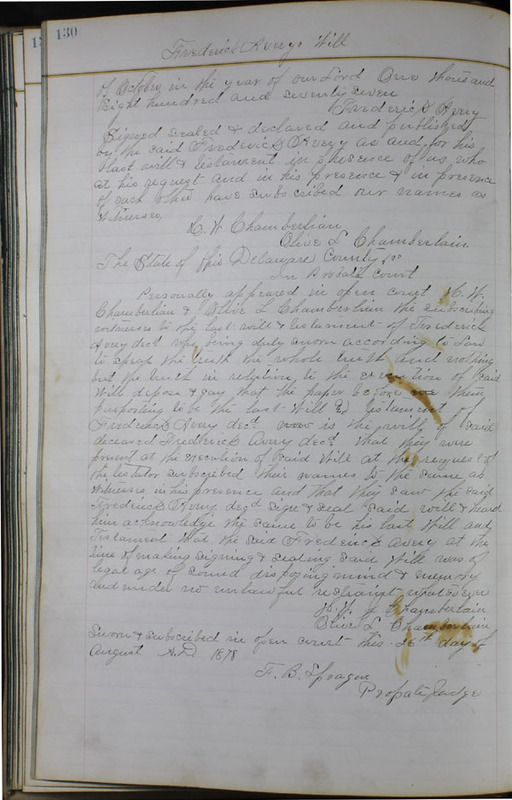 130
Frederick Averys Will
of October in the year of our Lord One thousand
Eight hundred and seventy seven
Frederick Avery
Signed sealed & declared and published
by the said Frederick Avery as and for his
last will & testament in presence of us, who
at his request and in his presence & in presence
of each other have subscribed our names as
Witnesses
H. W. Chamberlian
Olive L Chamberlain
The State of Ohio Delaware County ss
In Probate Court
Personally appeared in open court H. W.
Chamberlian & Olive L Chamberlian the subscribing
witnesses to the last will & testament of Frederick
Avery decd who being duly sworn according to Law
to speak the truth the whole truth and nothing
but the truth in relation to the execution of said
Will depose & say that the paper before them
purporting to be the last Will & testament of
Frederick Avery decd now is the will of said
deceased Frederick Avery decd that they were
present at the execution of said Will at the request of
the testator subscribed their names to the same as
witnesses in his presence and that they saw the said
Frederick Avery decd sign & seal said will & heard
him acknowledge the same to be his last Will and
Testament that the said Frederick Avery at the
time of making signing & sealing said Will was of
legal age of sound disposing mind & memory
and under no unlawful restraint whatsoever
H. W. Chamberlain
Olive L Chamberlain
Sworn & subscribed in open court this 26th day of
August A.D 1878
F. B. Sprague
Probate Judge